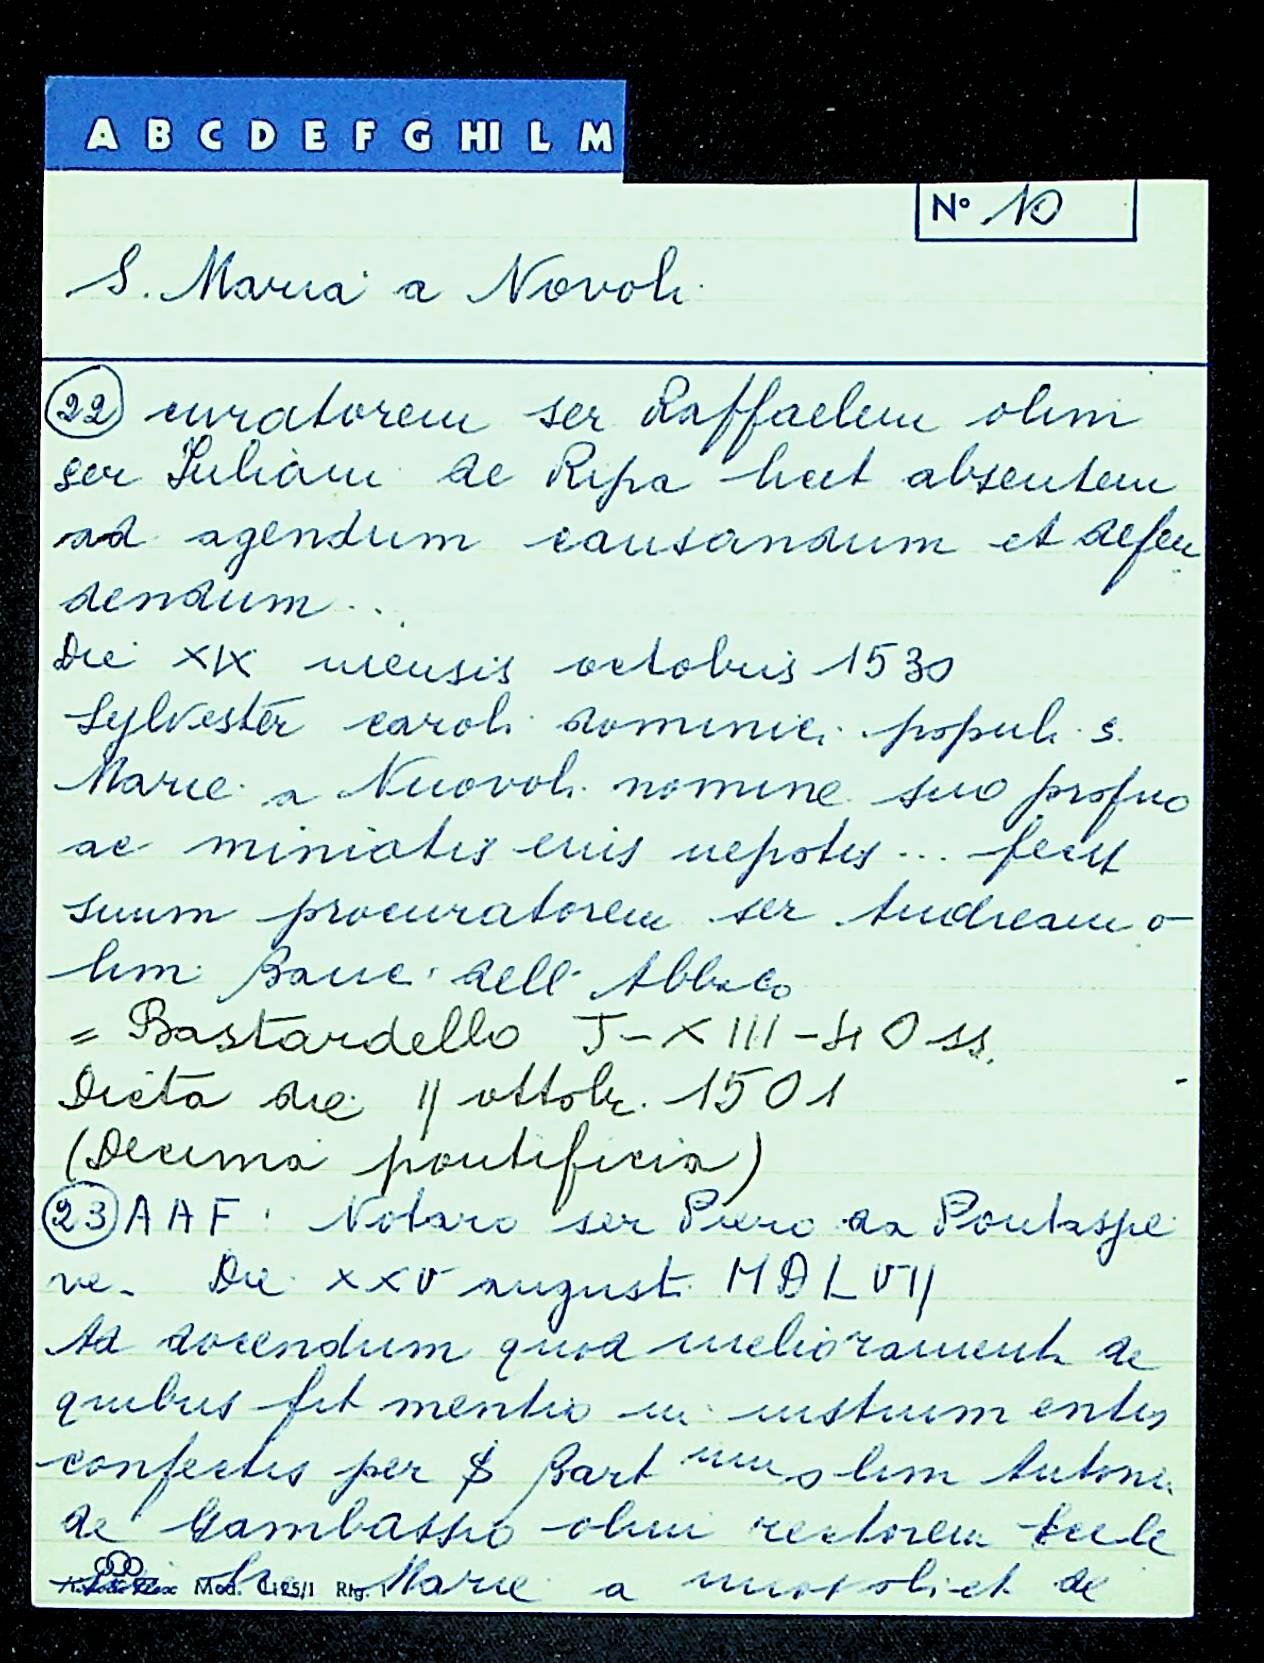 A B C D E F G HI L M
N° 10
S. Maria a Novoli
22 curatorem ser Raffaelem olim
ser Iuliani de Ripa licet absentem
ad agendum causandum et defen
dendum..
Die XIX mensis octobris 1530
Sylvester caroli dominici populi s.
Marie a Nuovoli nomine suo proprio
ac miniatis eius nepotis... fecit
suum procuratorem ser Andream o-
lim Banc. dell'Abbaco
= Bastardello J-XIII-40 ss.
Dicta die 11 ottobr. 1501
(Decima pontificia)
23 AAF: Notaro ser Piero da Pontassie
ve. Die XXV augusti MDLVII
Ad docendum quod melioramenti de
quibus fit mentio in instrumentis
confectis per S Bart meum olim Antonii
de Gambassio olim rectorem Eccle
Marie a nuovoli et de
Mod. 1125/1 Rig. 1